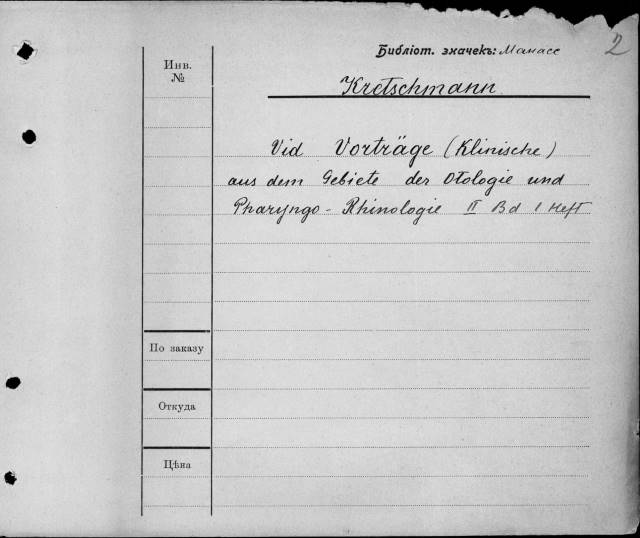 2
Библіот. значекъ: Манасс
Инв.
№
Kretschmann
Vid Vorträge (Klinische)
aus dem Gebiete der Otologie und
Pharyngo - Rhinologie II Bd 1 Heft
По заказу
Откуда
Цѣна